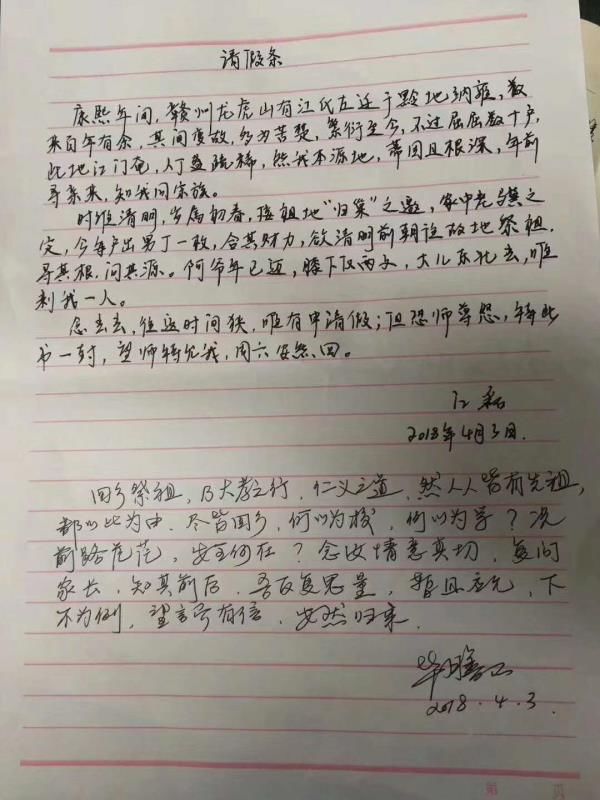 请假条
康熙年间，赣州龙虎山有江氏左迁于黔地纳雍，数
来百年有余，其间变故，多为苦楚，繁衍至今，不过屈屈数十户，
此地江门奄，人丁益疏稀，然我本源地，蒂固且根深，年前
寻亲来，知我同宗族。
时维清明，岁属初春，接祖地“归巢”之邀，家中老与冀之
定，今每户出男丁一枚，合其财力，欲清明前朝诣故地祭祖，
寻其根，问其源。阿爷年已迈，膝下仅两子，大儿东北去，唯
剩我一人。
念去去，往返时间狭，唯有申请假；但恐师尊怨，特此
书一封，望师特允我，周六安然回。
江磊
2018年4月3日
回乡祭祖，乃大孝之行，仁义之道，然人人皆有先祖，
都以此为由，尽皆回乡，何以为校，何以为学？况
前路茫茫，安全何在？念汝情意真切，复问
家长，知其前后，吾反复思量，暂且应允，下
不为例，望言而有信，安然归来。
2018.4.3.
第 页